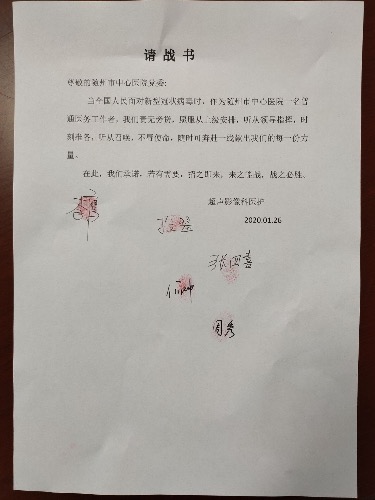 请战书
尊敬的随州市中心医院党委：
当全国人民面对新型冠状病毒时，作为随州市中心医院一名普
通医务工作者，我们责无旁贷，愿服从上级安排，听从领导指挥，时
刻准备，听从召唤，不辱使命，随时可奔赴一线献出我们的每一份力
量。
在此，我们承诺，若有需要，招之即来，来之能战，战之必胜。
超声影像科医护
2020.01.26
周秀